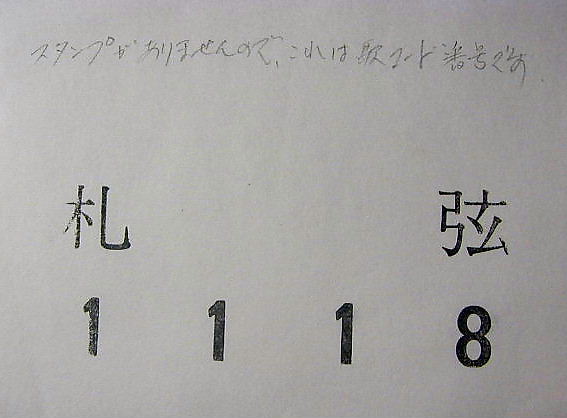 スタンプがありませんので、これは駅コード番号です
札弦
1118